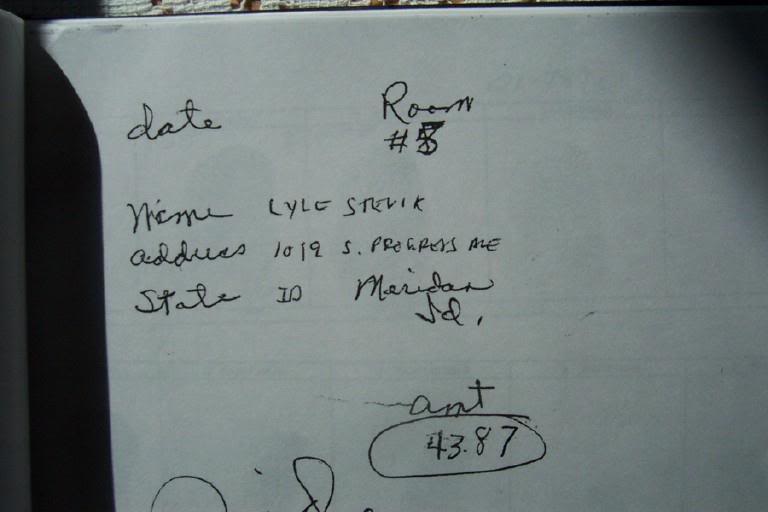 date Room
#5
Name LYLE STEVIK
address 1019 S. PROGRESS AVE
State ID Meridan
Id.
amt
43.87